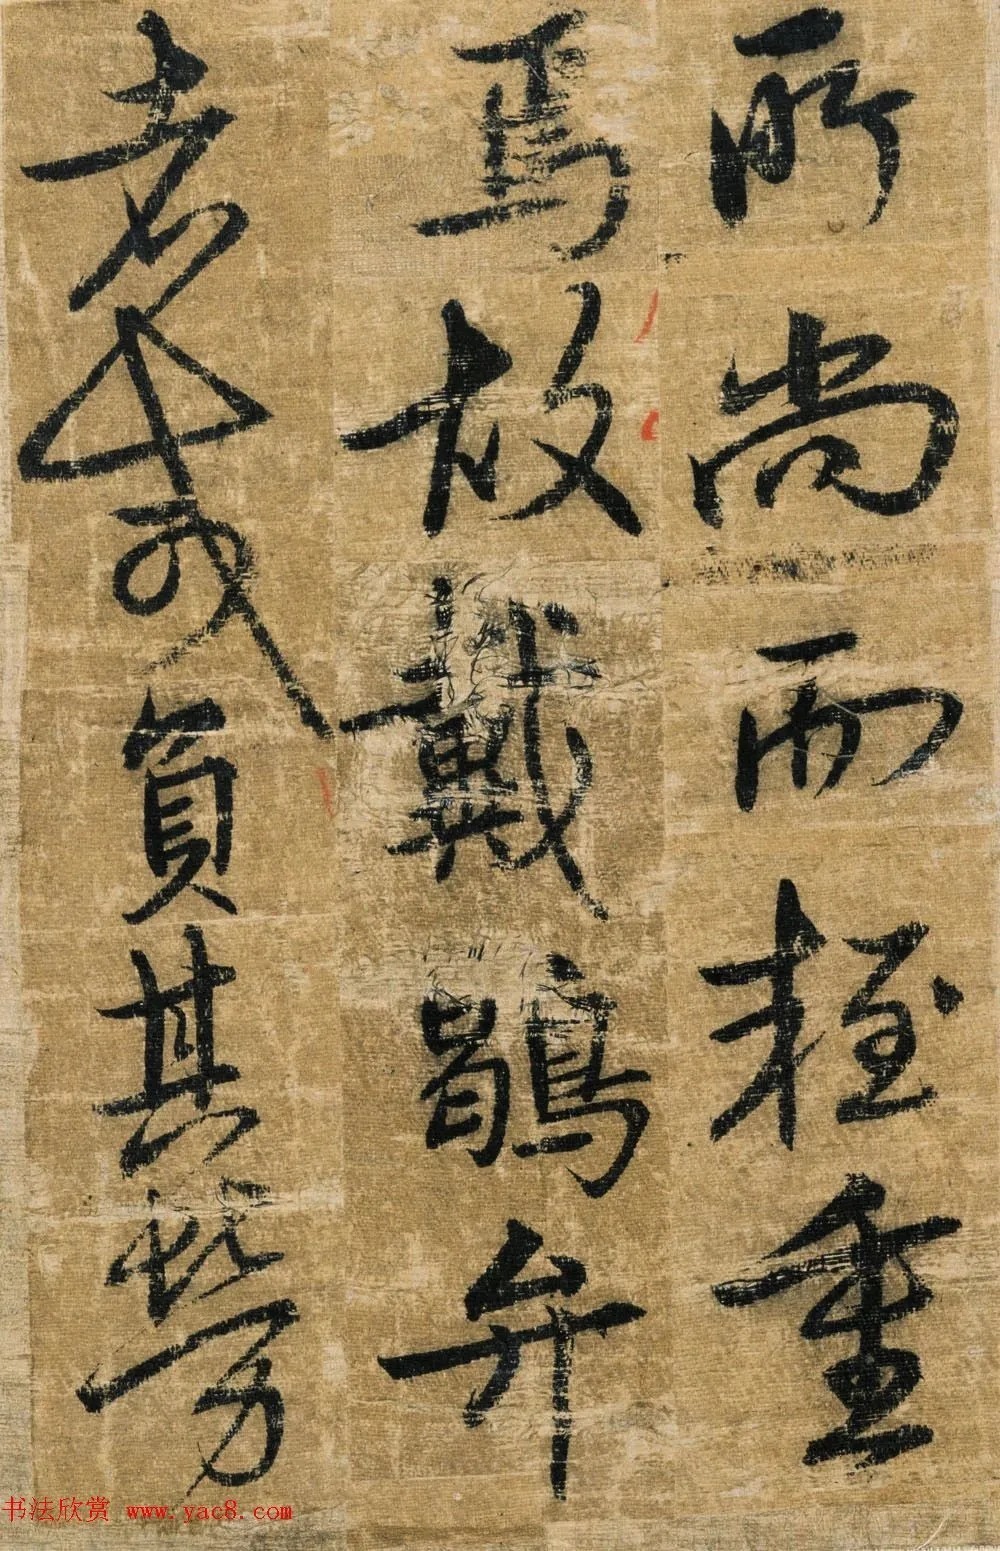 所尚而輕重
焉故戴鶡弁
者不可負其勞
书法欣赏 www.yac8.com